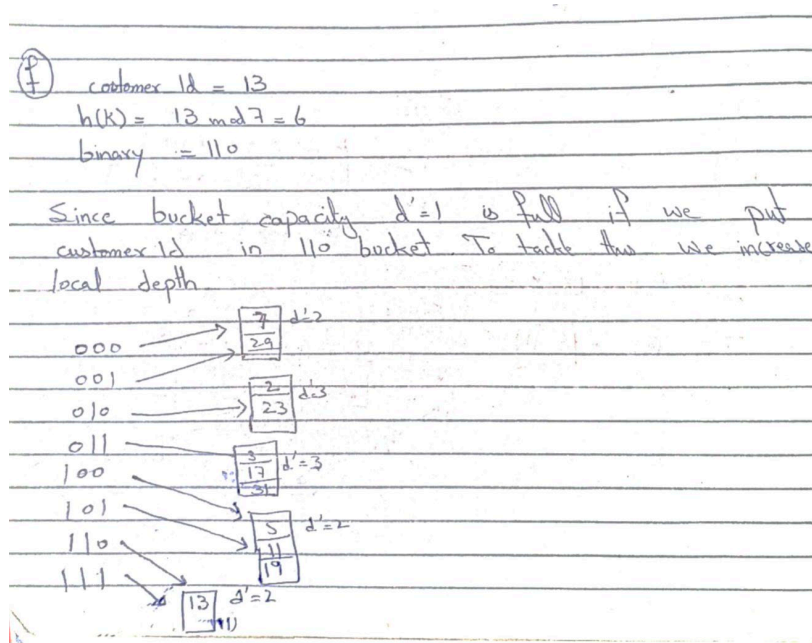 f
customer Id = 13
h(k) = 13 mod 7 = 6
binary = 110
Since bucket capacity d'=1 is full if we put
customer Id in 110 bucket. To tackle this we increase
local depth.
7 d'=2
000 29
001
2 d'=3
010 23
011
3
17 d'=3
100 31
101
5 d'=2
110 11
19
111
13 d'=2